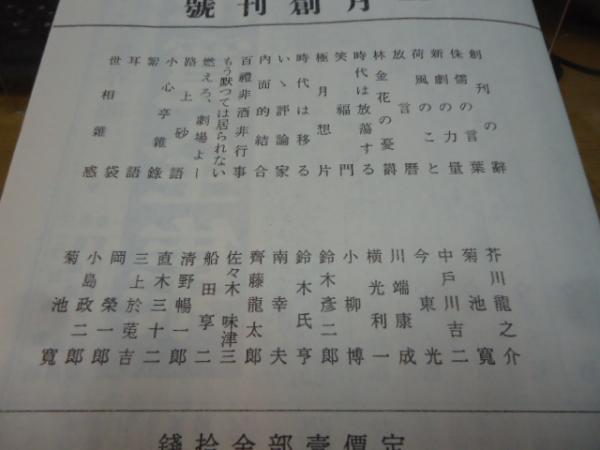 號刊創月一
創刊の辭
侏儒の言葉
新劇の力量
荷風のこと
放言暦
林金花の憂欝
時代は放蕩する
笑福門
極月想片
時代は移る
いゝ評論家
內面的結合
百禮非酒非行事
もう默つては居られない
燃えろ、劇場よ―
路上砂語
小心亭雜錄
絮語
耳袋
世相雜感
芥川龍之介
菊池寬
中戶川吉二
今東光
川端康成
橫光利一
小柳博
鈴木彥二郎
鈴木氏亨
南幸夫
齊藤龍太郎
佐々木味津三
船田享二
清野暢一郎
直木三十二
三上於菟吉
岡榮一郎
小島政二郎
菊池寬
錢拾金部壹價定